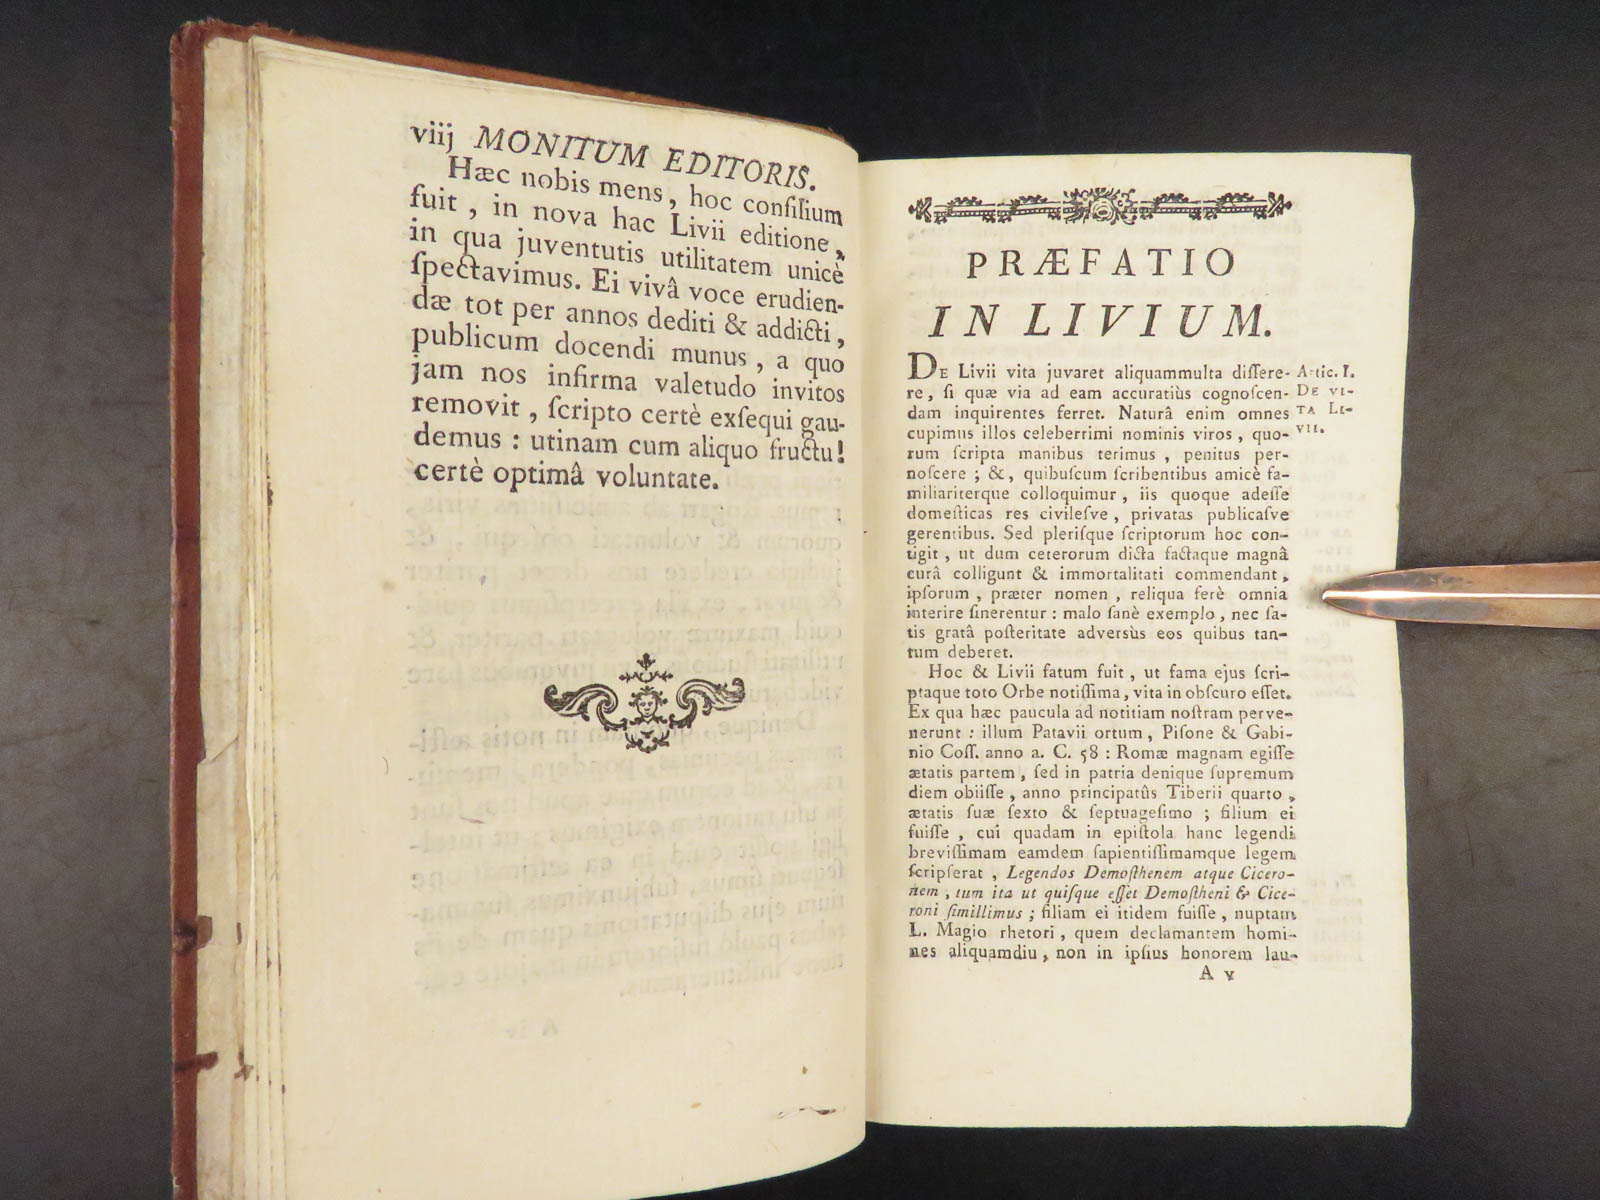 viij MONITUM EDITORIS.
Hæc nobis mens, hoc conſilium
fuit, in nova hac Livii editione,
in qua juventutis utilitatem unicè
ſpectavimus. Ei vivâ voce erudien-
dæ tot per annos dediti & addicti,
publicum docendi munus, a quo
jam nos infirma valetudo invitos
removit, ſcripto certè exſequi gau-
demus : utinam cum aliquo fructu!
certè optimâ voluntate.
PRÆFATIO
IN LIVIUM.
DE Livii vita juvaret aliquammulta diſſere-
re, ſi quæ via ad eam accuratiùs cognoſcen-
dam inquirentes ferret. Naturâ enim omnes
cupimus illos celeberrimi nominis viros, quo-
rum ſcripta manibus terimus, penitus per-
noſcere ; &, quibuſcum ſcribentibus amicè fa-
miliariterque colloquimur, iis quoque adeſſe
domeſticas res civileſve, privatas publicaſve
gerentibus. Sed plerifque ſcriptorum hoc con-
tigit, ut dum ceterorum dicta factaque magnâ
curâ colligunt & immortalitati commendant,
ipſorum, præter nomen, reliqua ferè omnia
interire ſinerentur : malo ſanè exemplo, nec ſa-
tis gratâ poſteritate adversùs eos quibus tan-
tum deberet.
Hoc & Livii fatum fuit, ut fama ejus ſcri-
ptaque toto Orbe notiſſima, vita in obſcuro eſſet.
Ex qua hæc paucula ad notitiam noſtram perve-
nerunt : illum Patavii ortum, Piſone & Gabi-
nio Coſſ. anno a. C. 58 : Romæ magnam egiſſe
ætatis partem, ſed in patria denique ſupremum
diem obiiſſe, anno principatûs Tiberii quarto,
ætatis ſuæ ſexto & ſeptuageſimo ; filium ei
fuiſſe, cui quadam in epiſtola hanc legendi
breviſſimam eamdem ſapientiſſimamque legem
ſcripſerat, Legendos Demoſthenem atque Cicero-
nem, tum ita ut quiſque eſſet Demoſtheni & Cice-
roni ſimillimus ; filiam ei itidem fuiſſe, nuptam
L. Magio rhetori, quem declamantem homi-
nes aliquamdiu, non in ipſius honorem lau-
A v
Artic. I.
DE VI-
TA LI-
VII.